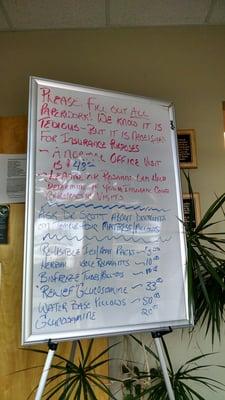 PLEASE FILL OUT ALL
PAPERWORK! WE KNOW IT IS
TEDIOUS - BUT IT IS NECESSARY
FOR INSURANCE PURPOSES
- A NORMAL OFFICE VISIT
IS $
- OR ROXANN CAN HELP
DETERMINE IF YOUR INSURANCE COVERS
VISITS
ASK DR. SCOTT ABOUT DISCOUNTS
ON MATTRESS/PILLOWS
REUSABLE ICE/HEAT PACKS
HERBAL
BIOFREEZE TUBES/ROLLONS
*RELIEF GLUCOSAMINE ~ 33.00
WATER BASE PILLOWS ~ 50.00
GLUCOSAMINE